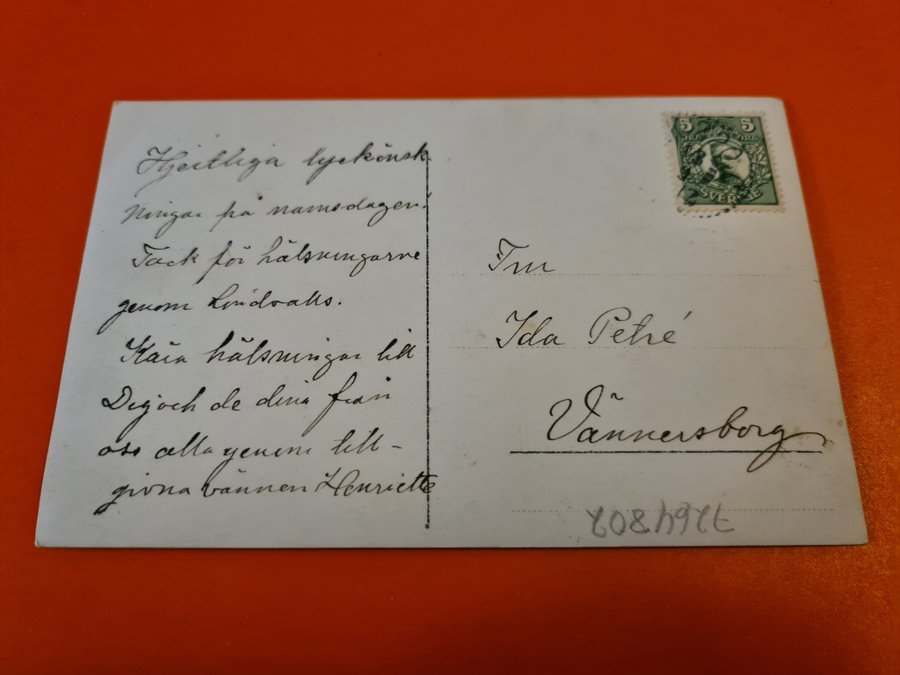 Hjertliga lyckönsk
ningar på namsdagen!
Tack för hälsningarne
genom Lindvalls.
Kära hälsningar till
Dig och de dina från
oss alla genom till-
givna vännen Henriette
5 5
SVERIGE
Fru
Ida Petré
Vännersborg
7264802